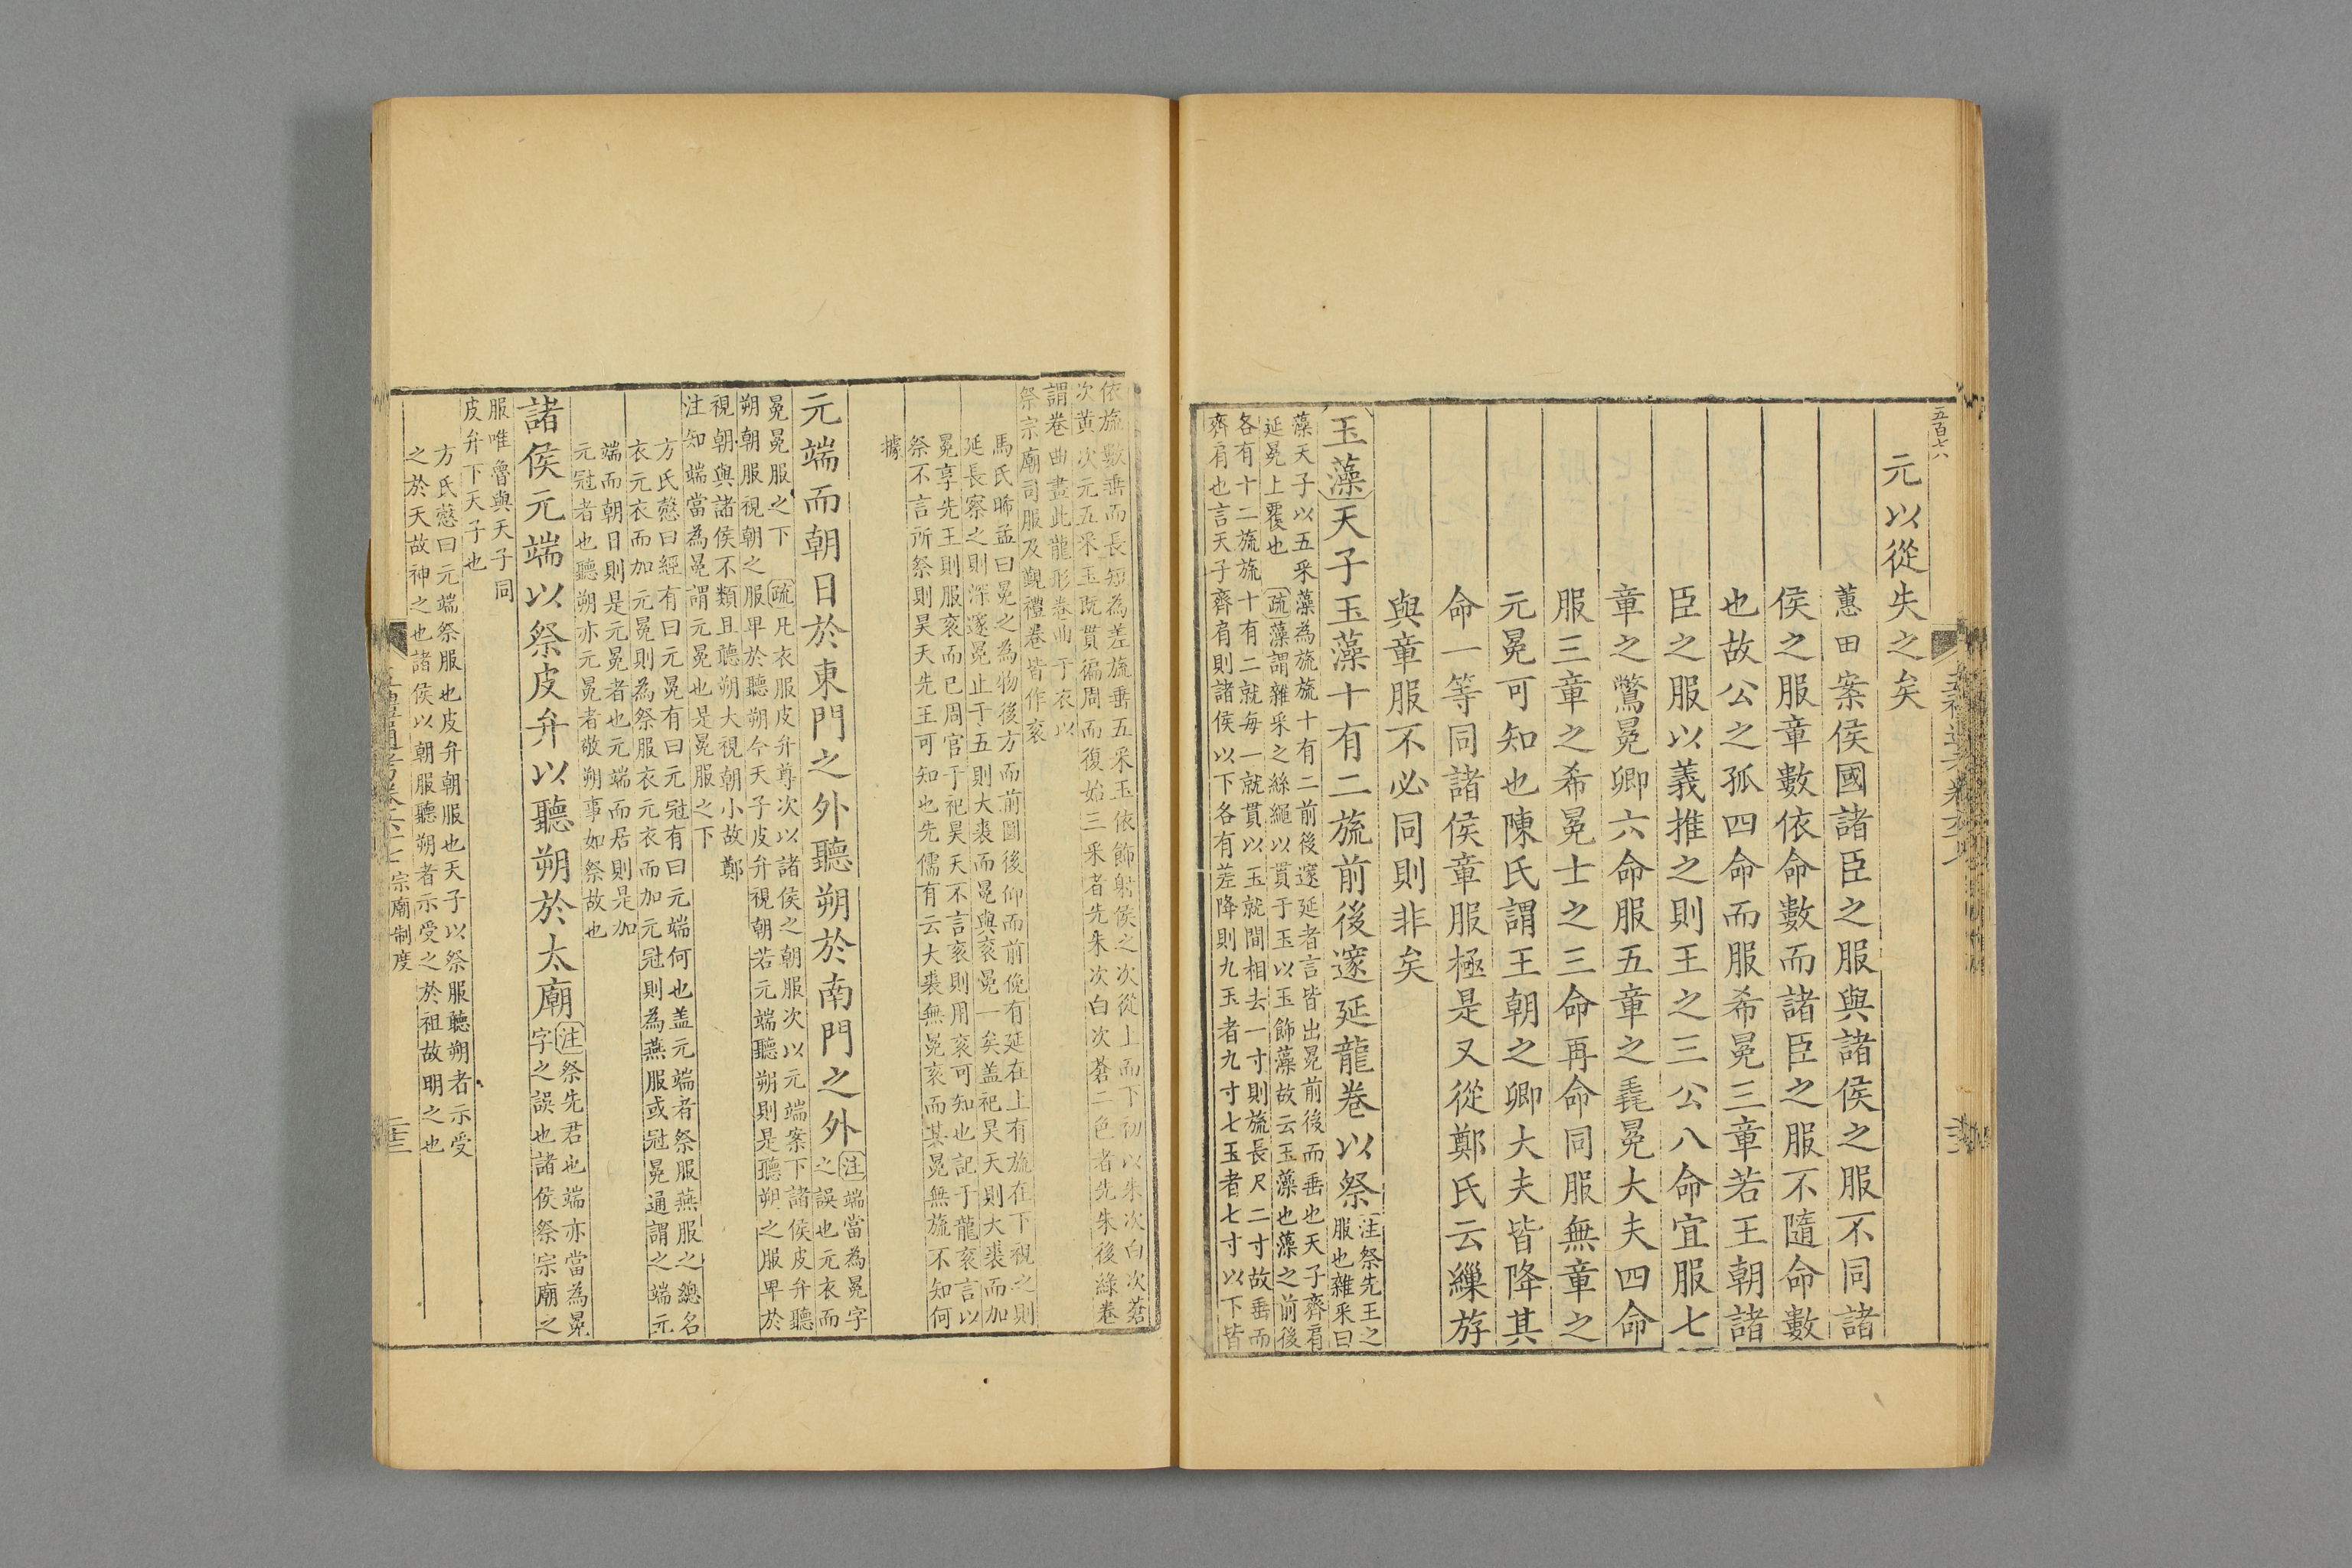 五百七八
元以從失之矣
蕙田案侯國諸臣之服與諸侯之服不同諸
侯之服章數依命數而諸臣之服不隨命數
也故公之孤四命而服希冕三章若王朝諸
臣之服以義推之則王之三公八命宜服七
章之鷩冕卿六命服五章之毳冕大夫四命
服三章之希冕士之三命再命同服無章之
元冕可知也陳氏謂王朝之卿大夫皆降其
命一等同諸侯章服極是又從鄭氏云繅斿
與章服不必同則非矣
玉藻天子玉藻十有二旒前後邃延龍卷以祭
注祭先王之
服也雜采曰
藻天子以五采藻為旒旒十有二前後邃延者言皆出冕前後而垂也天子齊肩
延冕上覆也 疏藻謂雜采之絲繩以貫于玉以玉飾藻故云玉藻也藻之前後
各有十二旒旒十有二就每一就貫以玉就間相去一寸則旒長尺二寸故垂而
齊肩也言天子齊肩則諸侯以下各有差降則九玉者九寸七玉者七寸以下皆
依旒數垂而長短為差旒垂五采玉依飾射侯之次從上而下初以朱次白次蒼
次黄次元五采玉既貫徧周而復始三采者先朱次白次蒼二色者先朱後綠卷
謂卷曲畫此龍形卷曲于衣以
祭宗廟司服及覲禮卷皆作衮
馬氏晞孟曰冕之為物後方而前圓後仰而前俛有延在上有旒在下視之則
延長察之則深邃冕止于五則大裘而冕與衮冕一矣盖祀昊天則大裘而加
冕享先王則服衮而已周官于祀昊天不言衮則用衮可知也記于龍衮言以
祭不言所祭則昊天先王可知也先儒有云大裘無冕衮而其冕無旒不知何
據
元端而朝日於東門之外聽朔於南門之外
注端當為冕字
之誤也元衣而
冕冕服之下 疏凡衣服皮弁尊次以諸侯之朝服次以元端案下諸侯皮弁聽
朔朝服視朝之服卑於聽朔今天子皮弁視朝若元端聽朔則是聽朔之服卑於
視朝與諸侯不類且聽朔大視朝小故鄭
注知端當為冕謂元冕也是冕服之下
方氏慤曰經有曰元冕有曰元冠有曰元端何也盖元端者祭服燕服之總名
衣元衣而加元冕則為祭服衣元衣而加元冠則為燕服或冠冕通謂之端元
端而朝日則是元冕者也元端而居則是加
元冠者也聽朔亦元冕者敬朔事如祭故也
諸侯元端以祭皮弁以聽朔於太廟
注祭先君也端亦當為冕
字之誤也諸侯祭宗廟之
服唯魯與天子同
皮弁下天子也
方氏慤曰元端祭服也皮弁朝服也天子以祭服聽朔者示受
之於天故神之也諸侯以朝服聽朔者示受之於祖故明之也
宗廟制度